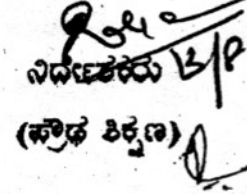 ನಿರ್ದೇಶಕರು 12/8
(ಪ್ರೌಢ ಶಿಕ್ಷಣ)